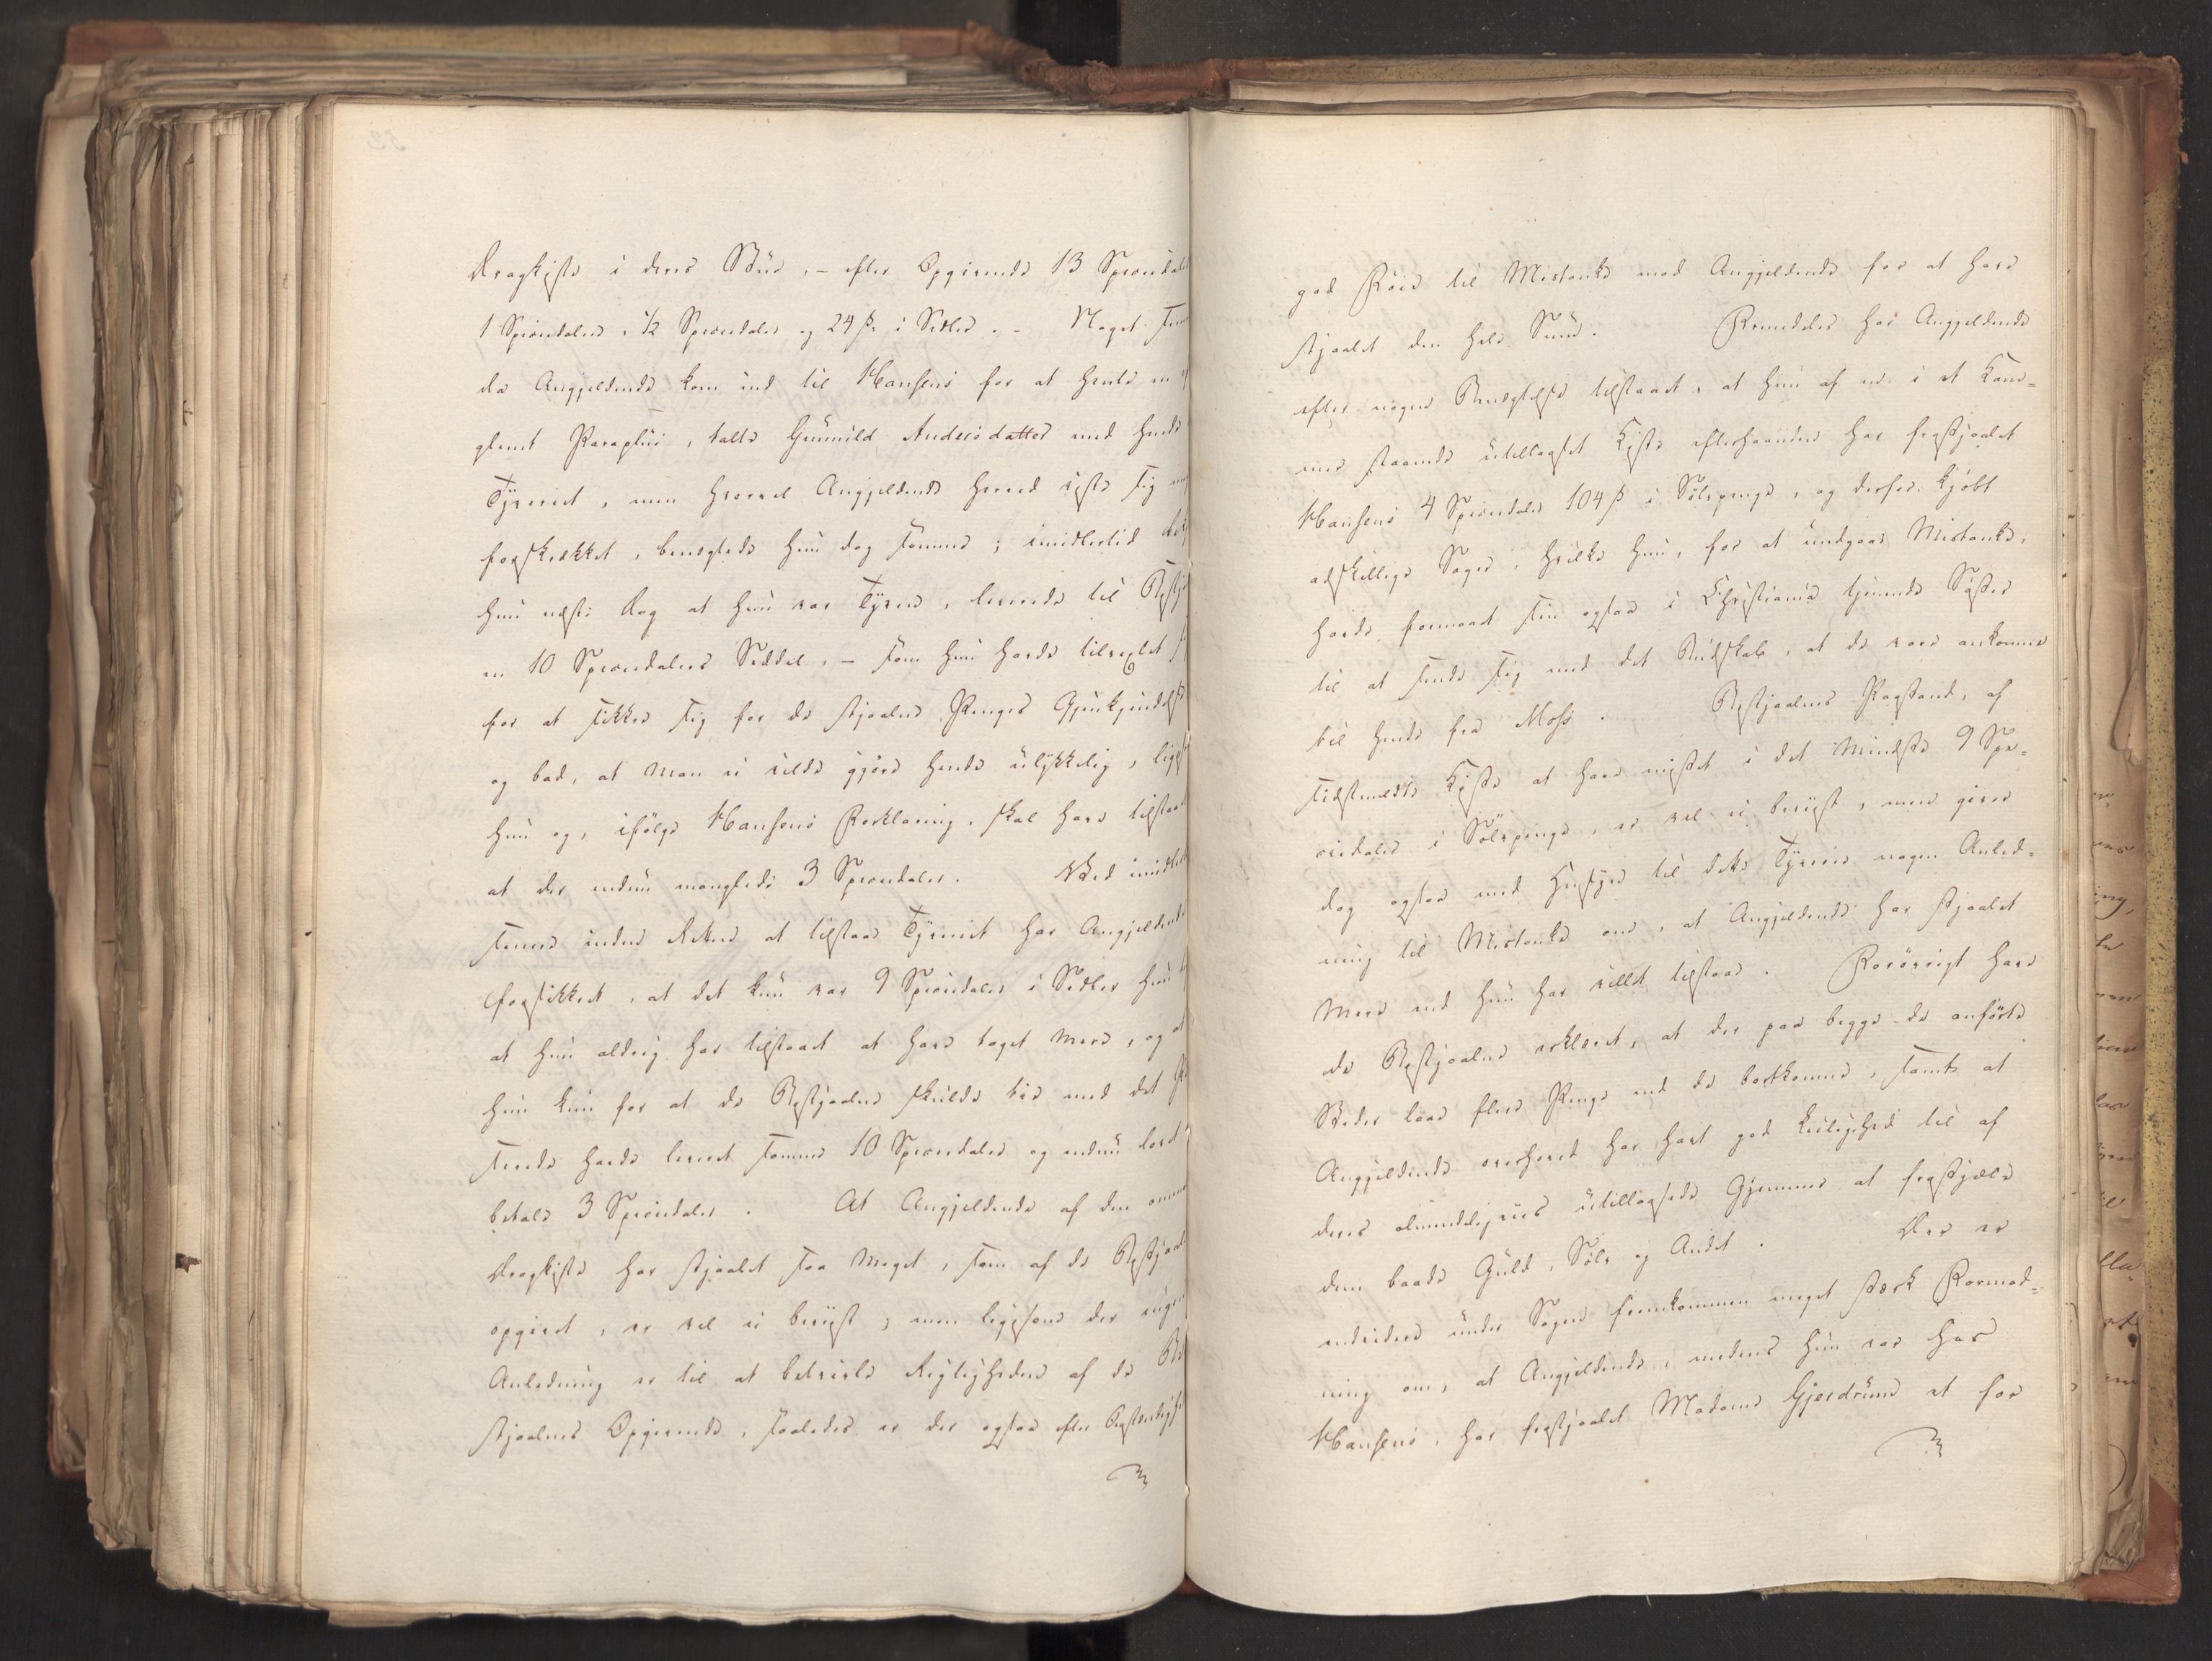 Dragkiste i deres Stue, – efter Opgivende 13 Speciedaler
1 Speciedaler, ½ Speciedaler og 24 ß. i Sedler. – Noget
da Angjeldende kom ind til Hansens for at hente en
glemt Paraplui, talte Gunnild Andersdatter med hende
Tyveriet, men hvorvel Angjeldende herved viste sig
forskrækket, benegtede hun dog samme; imidlertid
hun næste Dag at hun var Tyven, leverede til
en 10 Speciedalers Seddel, – som hun havde tilvexlet
for at sikkre sig for de stjaalne Penges Gjenkjendelse
og bad, at man ei vilde gjøre hende ulykkelig, lige
hun og, ifølge Hansens Forklaring, skal have tilstaaet
at der endnu manglede 3 Speciedaler. Ved
senere inden Retten at tilstaae Tyveriet har Angjeldende
forsikkret, at det kun var 9 Speciedaler i Sedler hun
at hun aldrig har tilstaaet at have taget mere, og at
hun kun for at de Bestjaalne skulde tie med det
skeede havde leveret samme 10 Speciedaler og endnu lovet
betale 3 Speciedaler. At Angjeldende af den
Dragkiste har stjaalet saa meget, som af de
opgivet, er vel ei beviist; men ligesom der ingen
Anledning er til at betvivle Rigtigheden af de Be
stjaalnes Opgivende, saaledes er der ogsaa efter
god Føie til Mistanke mod Angjeldende for at have
stjaalet den hele Sum. Fremdeles har Angjeldende
efter nogen Benegtelse tilstaaet, at hun af en i et Kam=
mer staaende uaflaaset Kiste efterhaanden har frastjaalet
Hansens 4 Speciedaler 104 ß i Sølvpenge, og derfor kjøbt
adskillige Sager, hvilke hun, for at undgaae Mistanke,
havde formaaet sin ogsaa i Christiania tjenende Søster
til at sende sig med det Budskab, at de vare ankomne
til hende fra Moss. Bestjaalnes Paastand, af
sidstmeldte Kiste at have mistet i det mindste 9 Spe=
ciedaler i Sølvpenge, er vel ei beviist, men giver
dog ogsaa med Hensyn til dette Tyverie nogen Anled=
ning til Mistanke om, at Angjeldende har stjaalet
mere end hun har villet tilstaae. Forøvrigt have
de Bestjaalne erklæret, at der paa begge de anførte
Steder laae flere Penge end de bortkomne, samt at
Angjeldende overhoved har havt god Leilighed til af
deres almindeligviis uaflaasede Gjemmer at frastjæle
dem baade Guld, Sølv og Andet. Der er
endvidere under Sagen fremkommen meget stærk Formod=
ning om, at Angjeldende, medens hun var hos
Hansens, har frastjaalet Madame Gjerdrum et for